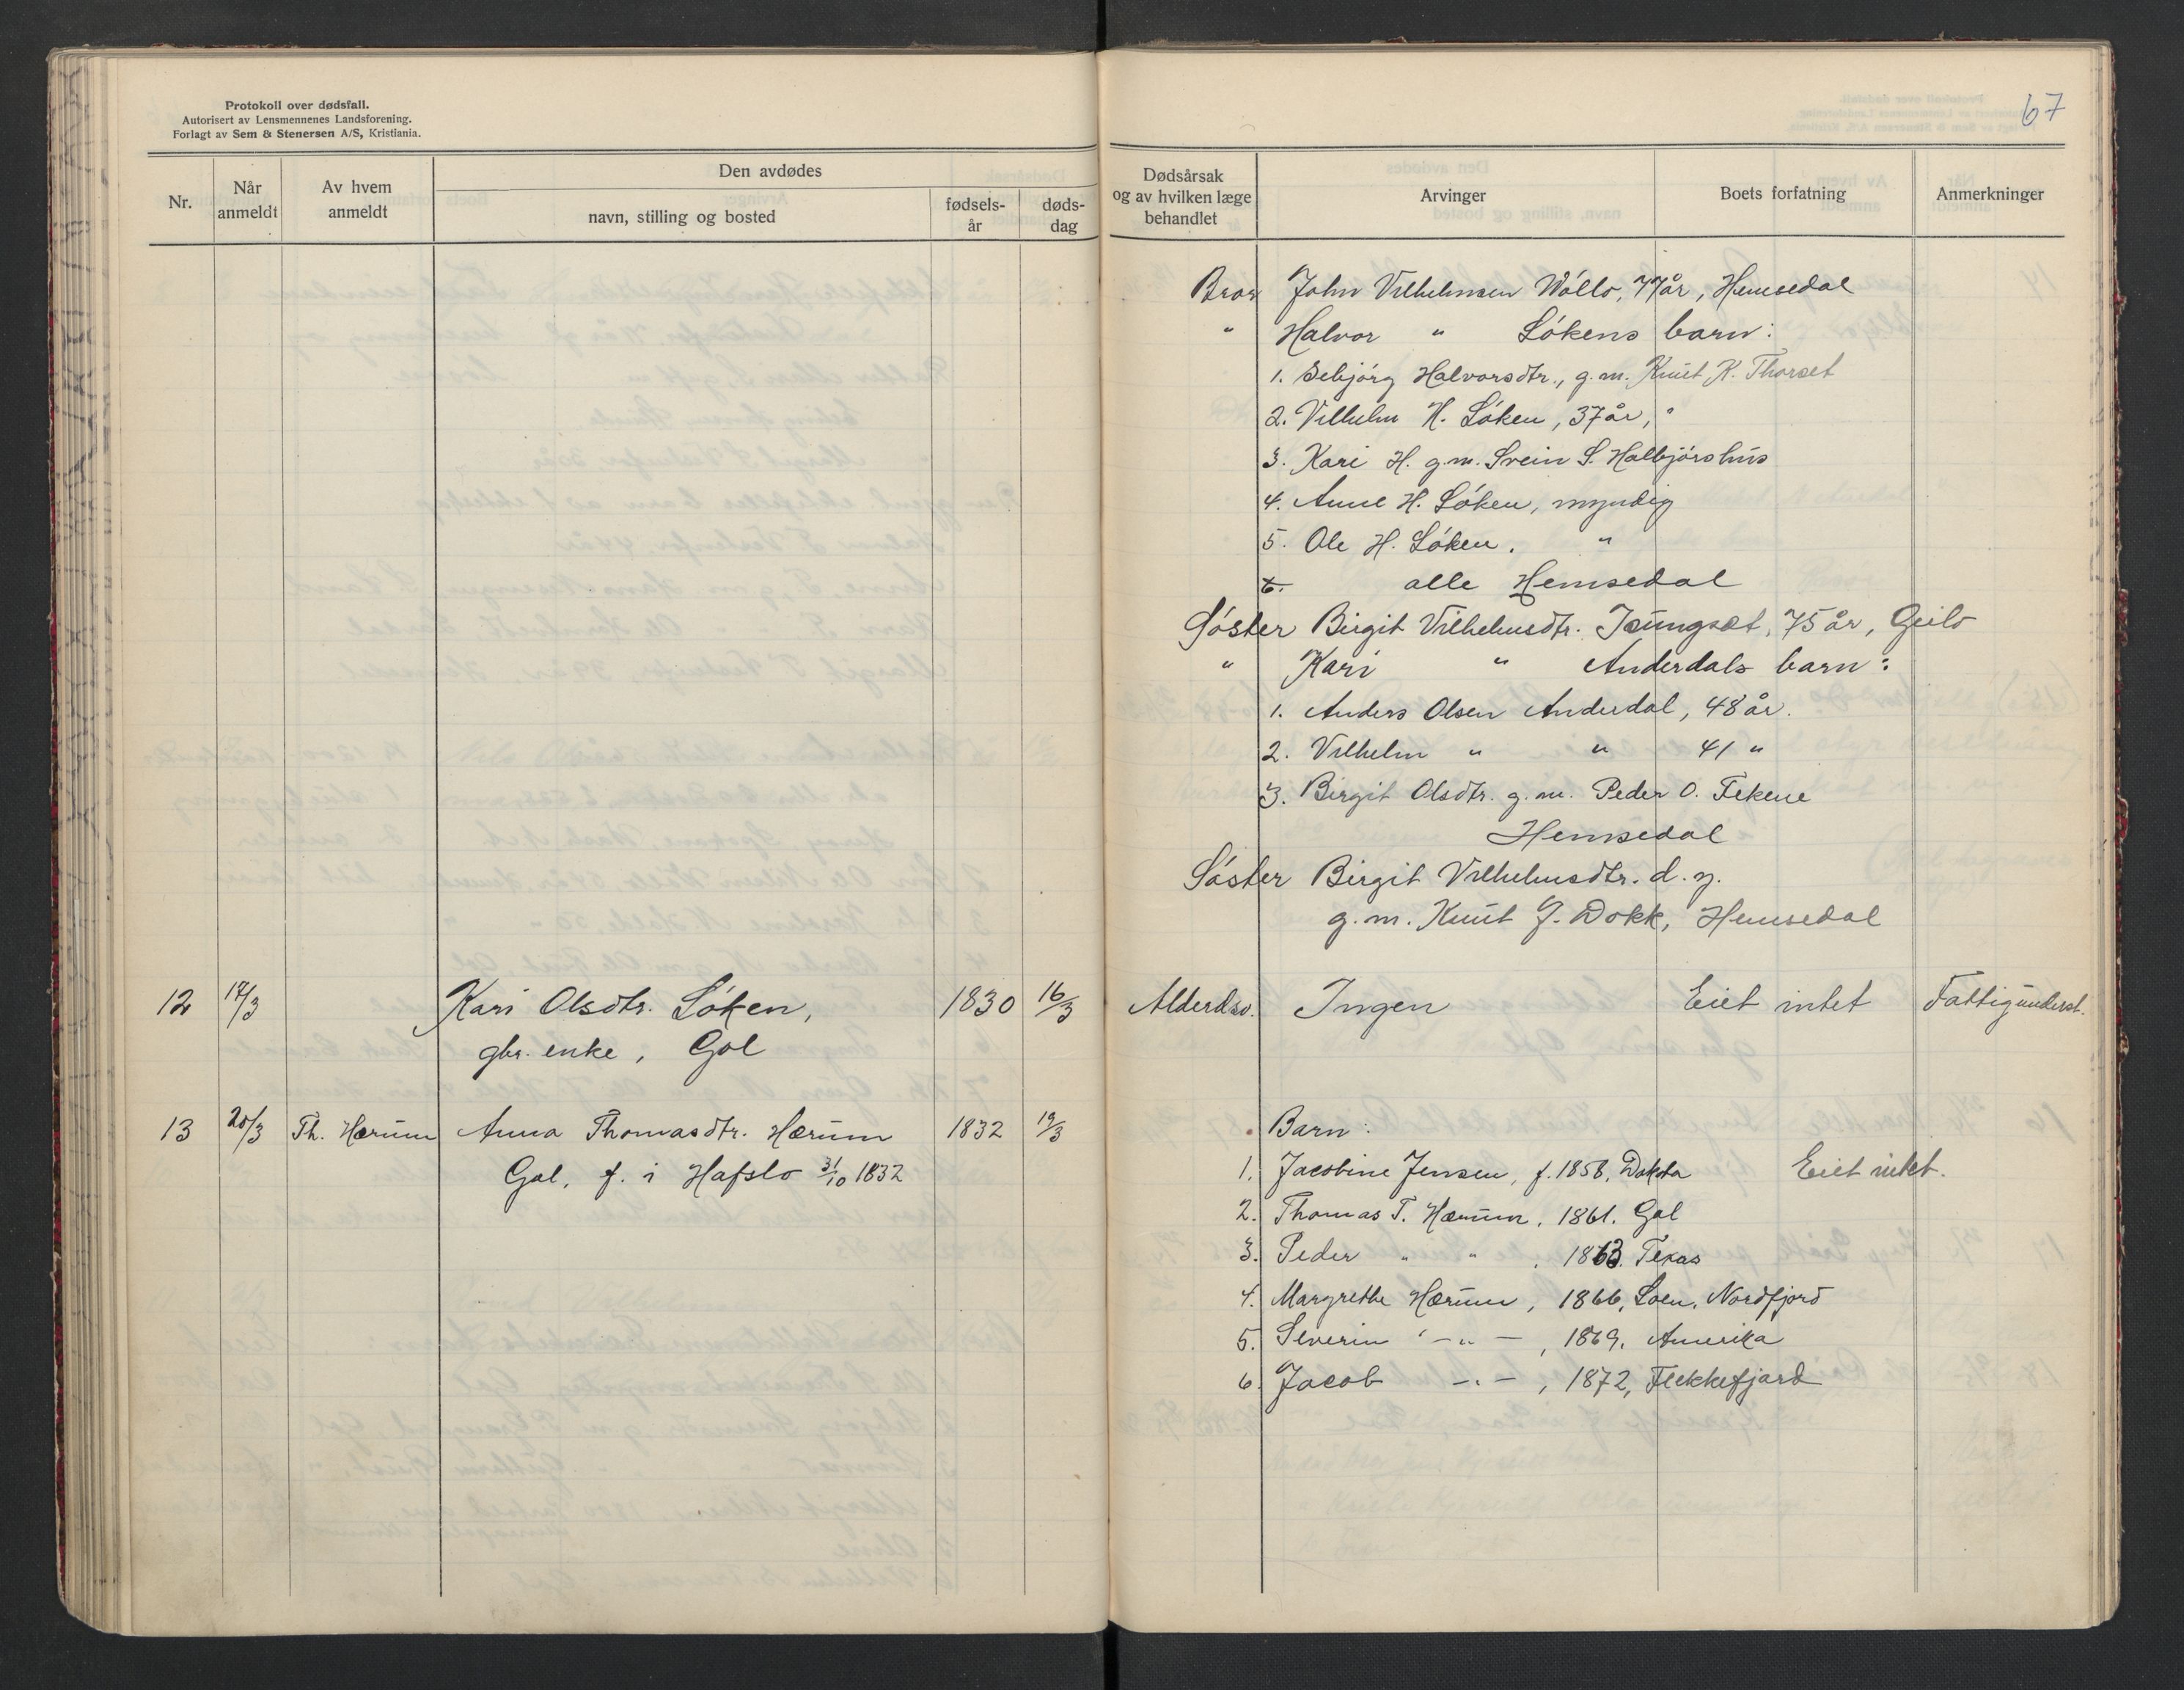 Protokoll over dødsfall.
Autorisert av Lensmennenes Landsforening.
Forlagt av Sem & Stenersen A/S, Kristiania.
Nr.
Når anmeldt
Av hvem anmeldt
Den avdødes
navn, stilling og bosted
fødsels-år
døds-dag
12 17/3 Kari Olsdtr. Lóken, 1830 16/3
gbr. enke, Gol
13 20/3 Th. Hærŭm Anna Thomasdtr. Hærŭm 1832 19/3
Gol, f. i Hafslo 31/10 1832
67
Dødsårsak og av hvilken læge behandlet
Arvinger
Boets forfatning
Anmerkninger
Bror John Vilhelmsen Wóllo, 77 år, Hemsedal
" Halvor " Lókens barn:
1. Sebjórg Halvorsdtr., g.m. Knŭt K. Thorset
2. Vilhelm H. Lóken, 37 år, "
3. Kari H. g.m. Svein S. Halbjórshŭs
4. Anne H. Lóken, myndig
5. Ole H. Lóken. "
6. alle Hemsedal
Sóster Birgit Vilhelmsdtr. 75 år, Geilo
" Kari " Anderdals barn:
1. Anders Olsen Anderdal, 48 år.
2. Vilhelm " " 41 "
3. Birgit Olsdtr. g.m. Peder O. Fekene
Hemsedal
Sóster Birgit Vilhelmsdtr. d.y.
g.m. Knŭt J. Dokk, Hemsedal
Alderdsv. Ingen Eiet intet Fattigŭnderst.
Barn:
1. Jacobine Jensen, f. 1858, Dakota Eiet intet.
2. Thomas T. Hærŭm, 1861. Gol
3. Peder " " , 1863. Texas
4. Margrethe Hærŭm, 1866, Loen, Nordfjord
5. Severin - " - , 1869. Amerika
6. Jacob - " - , 1872, Flekkefjord